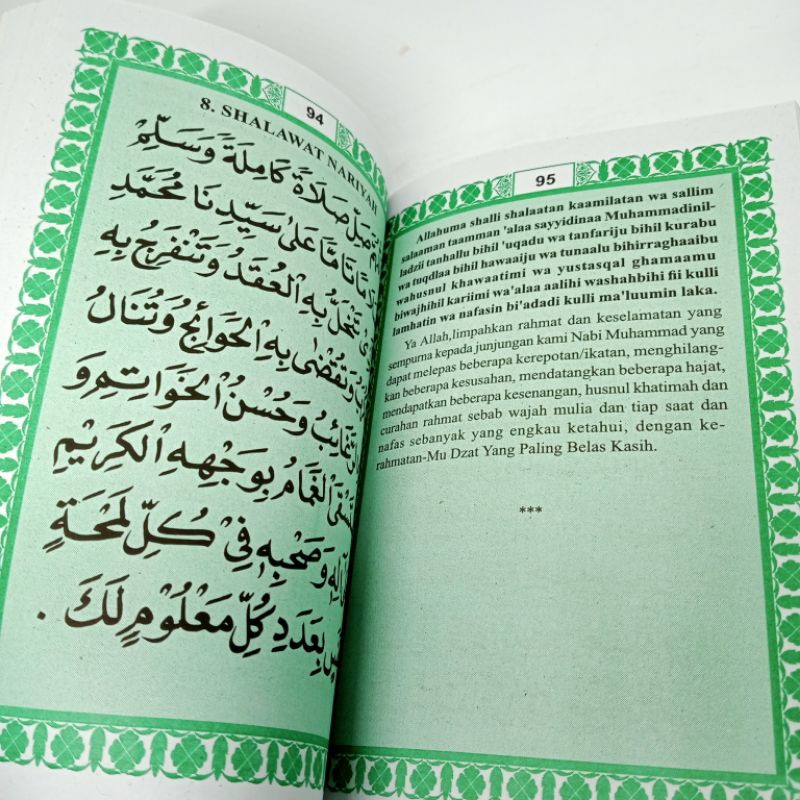 94
8. SHALAWAT NARIYAH
صَلِّ صَلَاةً كَامِلَةً وَسَلِّمْ
تَامًّا عَلَى سَيِّدِنَا مُحَمَّدٍ
تَنْحَلُّ بِهِ الْعُقَدُ وَتَنْفَرِجُ بِهِ
وَتُقْضَى بِهِ الْحَوَائِجُ وَتُنَالُ
وَحُسْنُ الْخَوَاتِمِ وَ
الْغَمَامُ بِوَجْهِهِ الْكَرِيْمِ
وَصَحْبِهِ فِيْ كُلِّ لَمْحَةٍ
بِعَدَدِ كُلِّ مَعْلُوْمٍ لَكَ .
95
Allahuma shalli shalaatan kaamilatan wa sallim
salaaman taamman 'alaa sayyidinaa Muhammadinil-
ladzii tanhallu bihil 'uqadu wa tanfariju bihil kurabu
wa tuqdlaa bihil hawaaiju wa tunaalu bihirraghaaibu
wahusnul khawaatimi wa yustasqal ghamaamu
biwajhihil kariimi wa'alaa aalihi washahbihi fii kulli
lamhatin wa nafasin bi'adadi kulli ma'luumin laka.
Ya Allah,limpahkan rahmat dan keselamatan yang
sempurna kepada junjungan kami Nabi Muhammad yang
dapat melepas beberapa kerepotan/ikatan, menghilang-
kan beberapa kesusahan, mendatangkan beberapa hajat,
mendapatkan beberapa kesenangan, husnul khatimah dan
curahan rahmat sebab wajah mulia dan tiap saat dan
nafas sebanyak yang engkau ketahui, dengan ke-
rahmatan-Mu Dzat Yang Paling Belas Kasih.
***